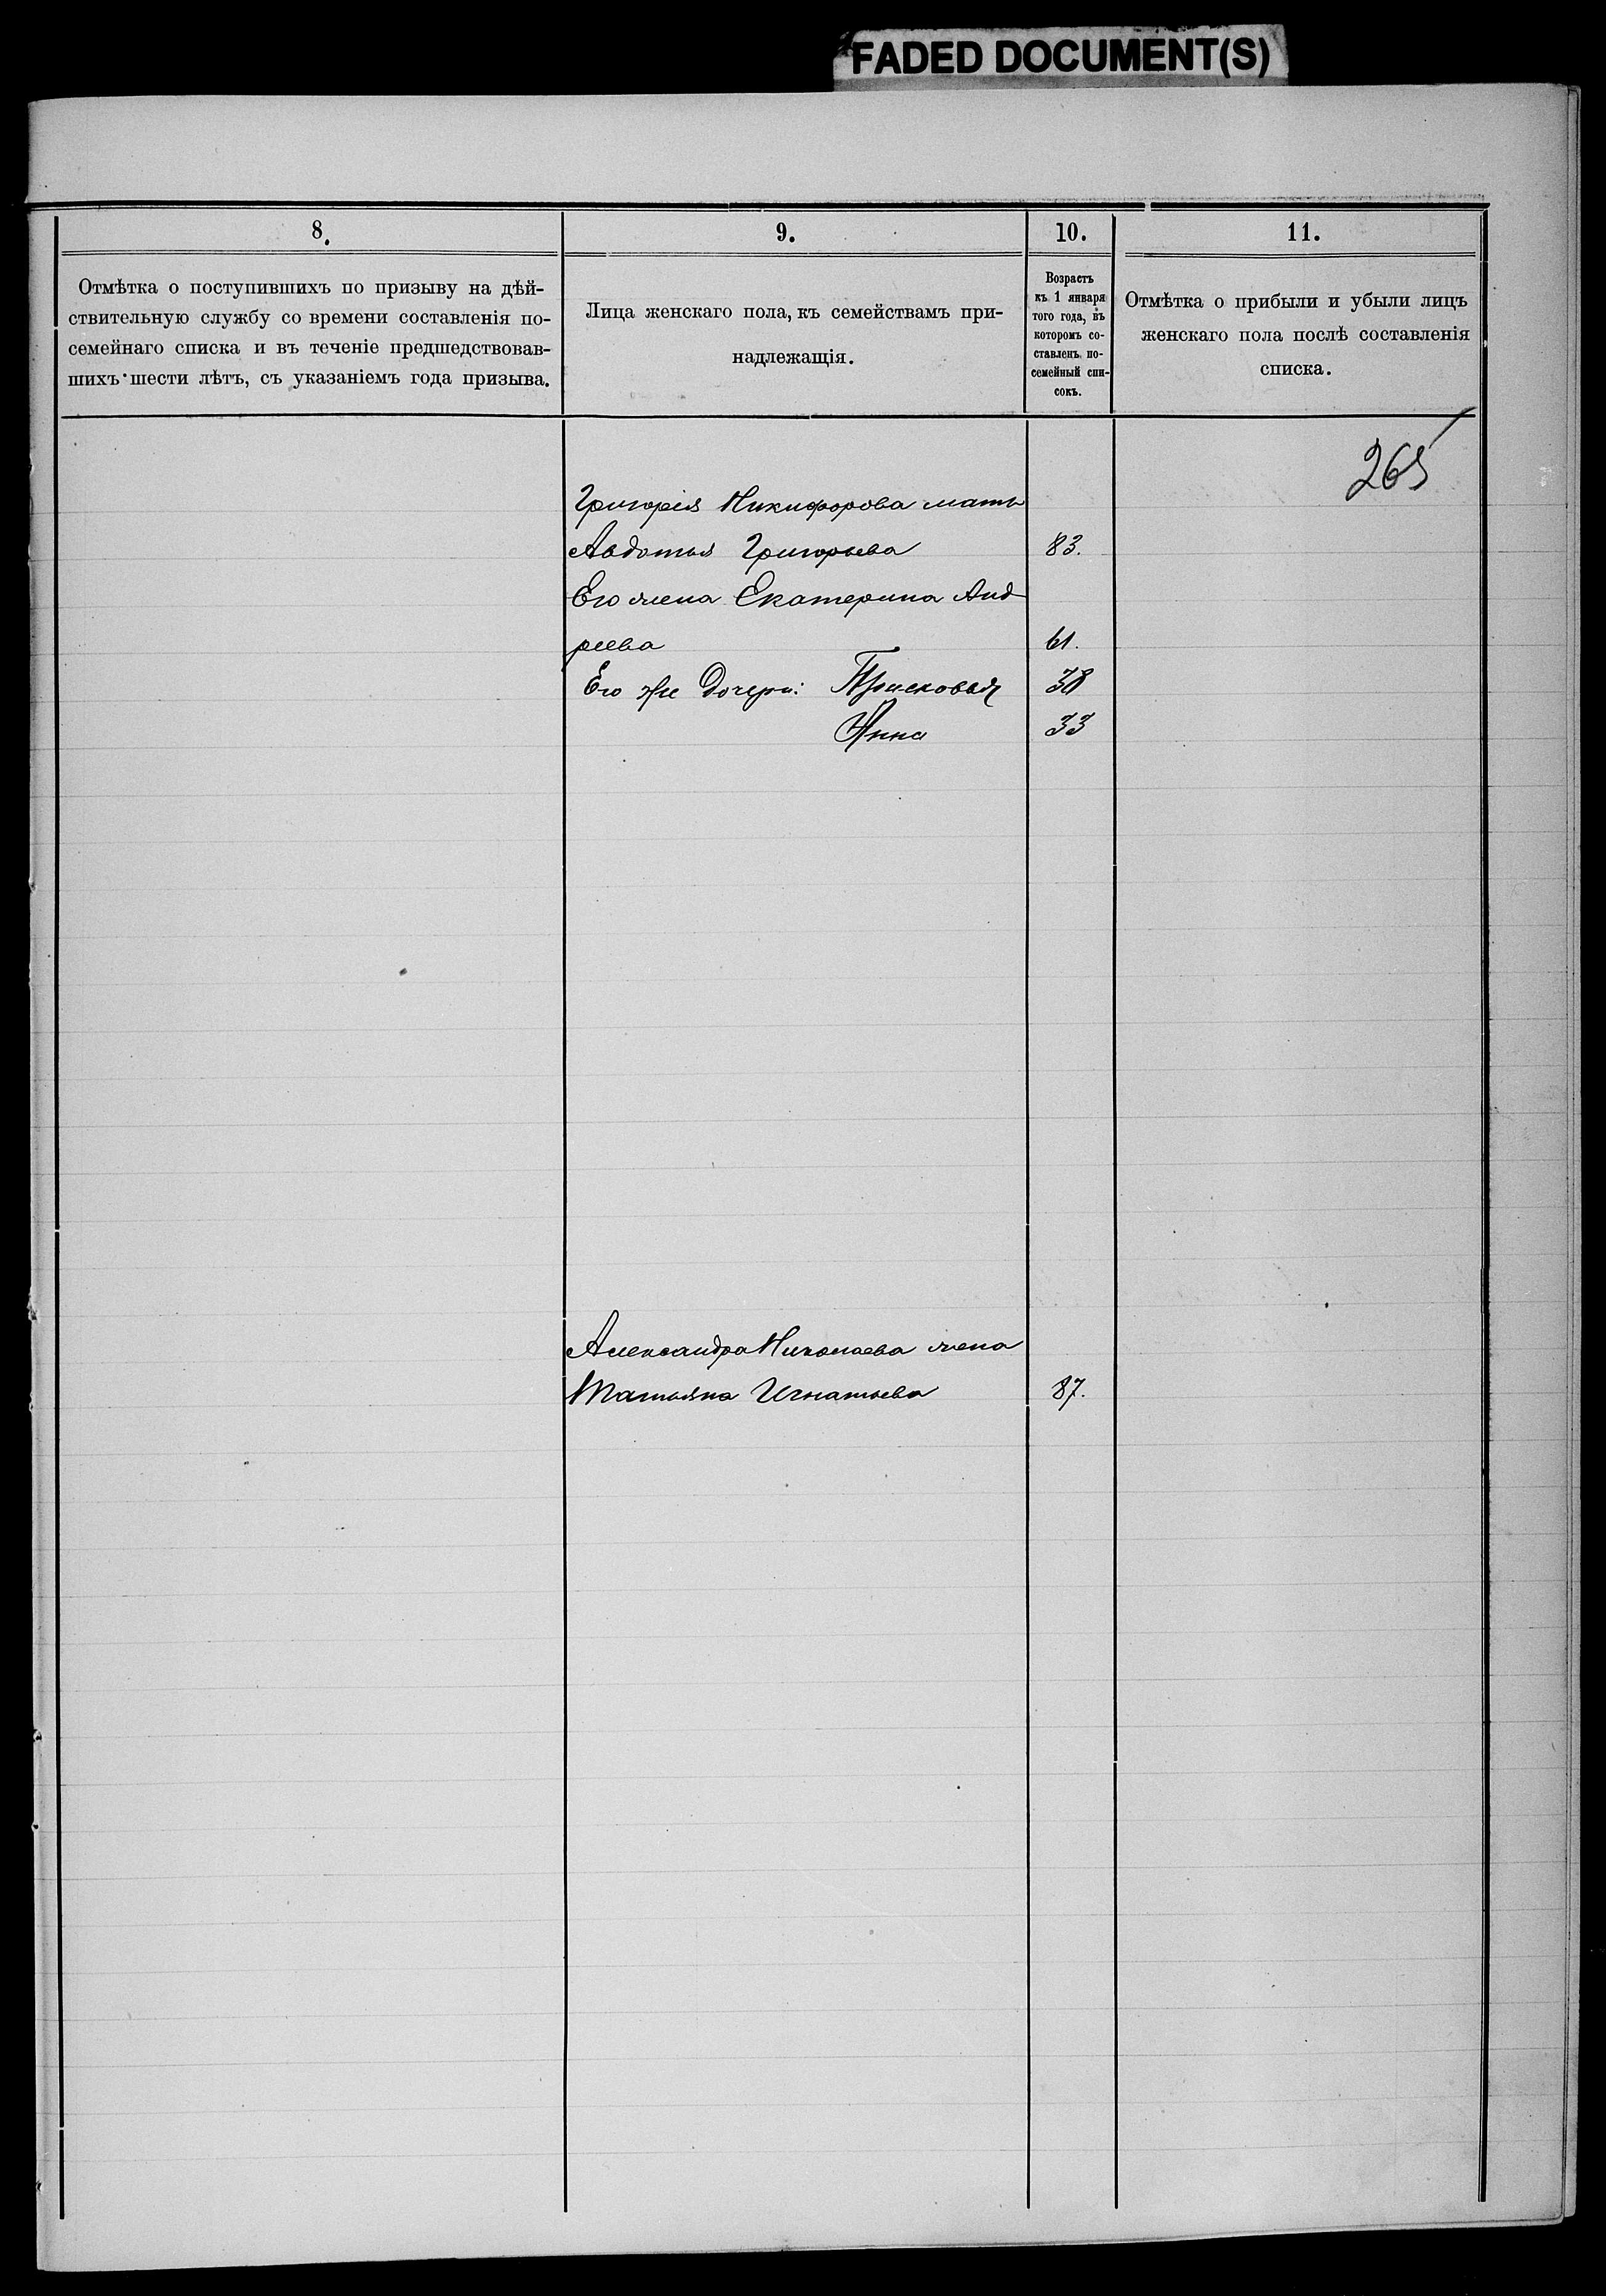 FADED DOCUMENT(S)
8.
Отмѣтка о поступившихъ по призыву на дѣй-
ствительную службу со времени составленія по-
семейнаго списка и въ теченіе предшедствовав-
шихъ шести лѣтъ, съ указаніемъ года призыва.
9.
Лица женскаго пола, къ семействамъ при-
надлежащія.
10.
Возрастъ
къ 1 января
того года, въ
которомъ со-
ставленъ по-
семейный спи-
сокъ.
11.
Отмѣтка о прибыли и убыли лицъ
женскаго пола послѣ составленія
списка.
265
Григорія Никифорова мать
Авдотья Григорьева 83.
Его жена Екатерина Анд
реева 61.
Его же дочери: Прасковья 38
Анна 33
Александра Николаева жена
Татьяна Игнатьева 87.